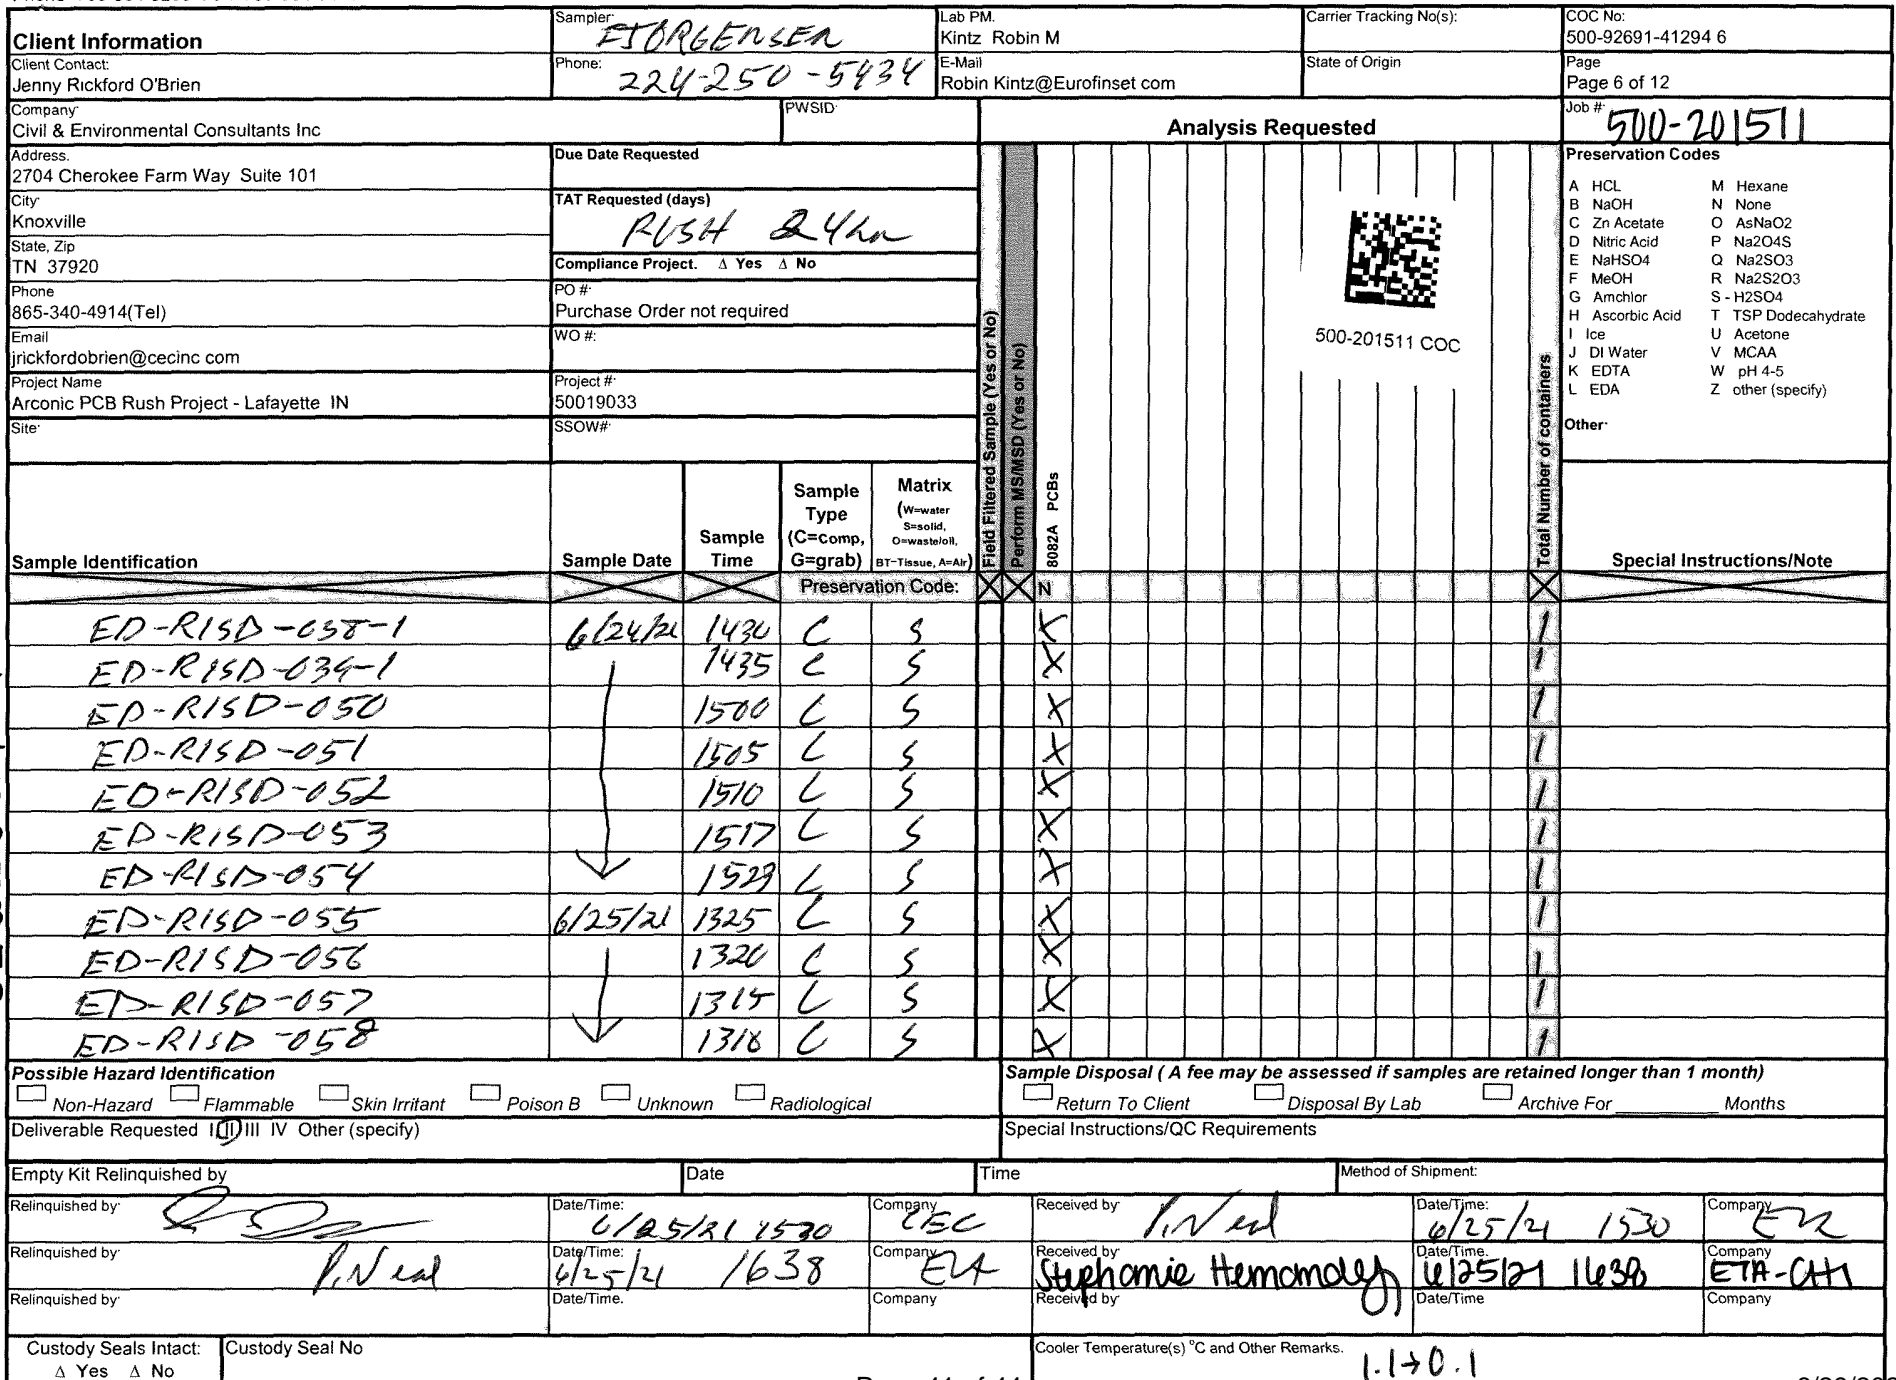 Client Information
Sampler: EJORGENSEN
Lab PM. Kintz Robin M
Carrier Tracking No(s):
COC No: 500-92691-41294 6
Client Contact: Jenny Rickford O'Brien
Phone: 224-250-5934
E-Mail Robin Kintz@Eurofinset com
State of Origin
Page Page 6 of 12
Company Civil & Environmental Consultants Inc
PWSID
Analysis Requested
Job # 500-201511
Address. 2704 Cherokee Farm Way Suite 101
City Knoxville
State, Zip TN 37920
Phone 865-340-4914(Tel)
Email jrickfordobrien@cecinc com
Project Name Arconic PCB Rush Project - Lafayette IN
Site
Due Date Requested
TAT Requested (days) RUSH 24hr
Compliance Project. Δ Yes Δ No
PO # Purchase Order not required
WO #:
Project # 50019033
SSOW#
Field Filtered Sample (Yes or No)
Perform MS/MSD (Yes or No)
8082A PCBs
500-201511 COC
Total Number of containers
Preservation Codes
A HCL M Hexane
B NaOH N None
C Zn Acetate O AsNaO2
D Nitric Acid P Na2O4S
E NaHSO4 Q Na2SO3
F MeOH R Na2S2O3
G Amchlor S - H2SO4
H Ascorbic Acid T TSP Dodecahydrate
I Ice U Acetone
J DI Water V MCAA
K EDTA W pH 4-5
L EDA Z other (specify)
Other
Sample Identification
Sample Date
Sample Time
Sample Type (C=comp, G=grab)
Matrix (W=water S=solid, O=waste/oil, BT-Tissue, A=Air)
Special Instructions/Note
Preservation Code: N
ED-RISD-038-1 6/24/21 1430 C S X 1
ED-RISD-039-1 1435 C S X 1
ED-RISD-050 1500 C S X 1
ED-RISD-051 1505 C S X 1
ED-RISD-052 1510 C S X 1
ED-RISD-053 1517 C S X 1
ED-RISD-054 C S X 1
ED-RISD-055 6/25/21 1325 C S X 1
ED-RISD-056 1320 C S X 1
ED-RISD-057 1315 C S X 1
ED-RISD-058 1318 C S X 1
Possible Hazard Identification
Non-Hazard Flammable Skin Irritant Poison B Unknown Radiological
Sample Disposal ( A fee may be assessed if samples are retained longer than 1 month)
Return To Client Disposal By Lab Archive For Months
Deliverable Requested I II III IV Other (specify)
Special Instructions/QC Requirements
Empty Kit Relinquished by
Date
Time
Method of Shipment:
Relinquished by Date/Time: 6/25/21 1530 Company CEC Received by P. Neal Date/Time: 6/25/21 1530 Company
Relinquished by: P. Neal Date/Time: 6/25/21 1638 Company Received by Stephanie Hernandez Date/Time. 6/25/21 1638 Company ETA-CHI
Relinquished by Date/Time. Company Received by Date/Time Company
Custody Seals Intact: Δ Yes Δ No
Custody Seal No
Cooler Temperature(s) °C and Other Remarks. 1.1→0.1